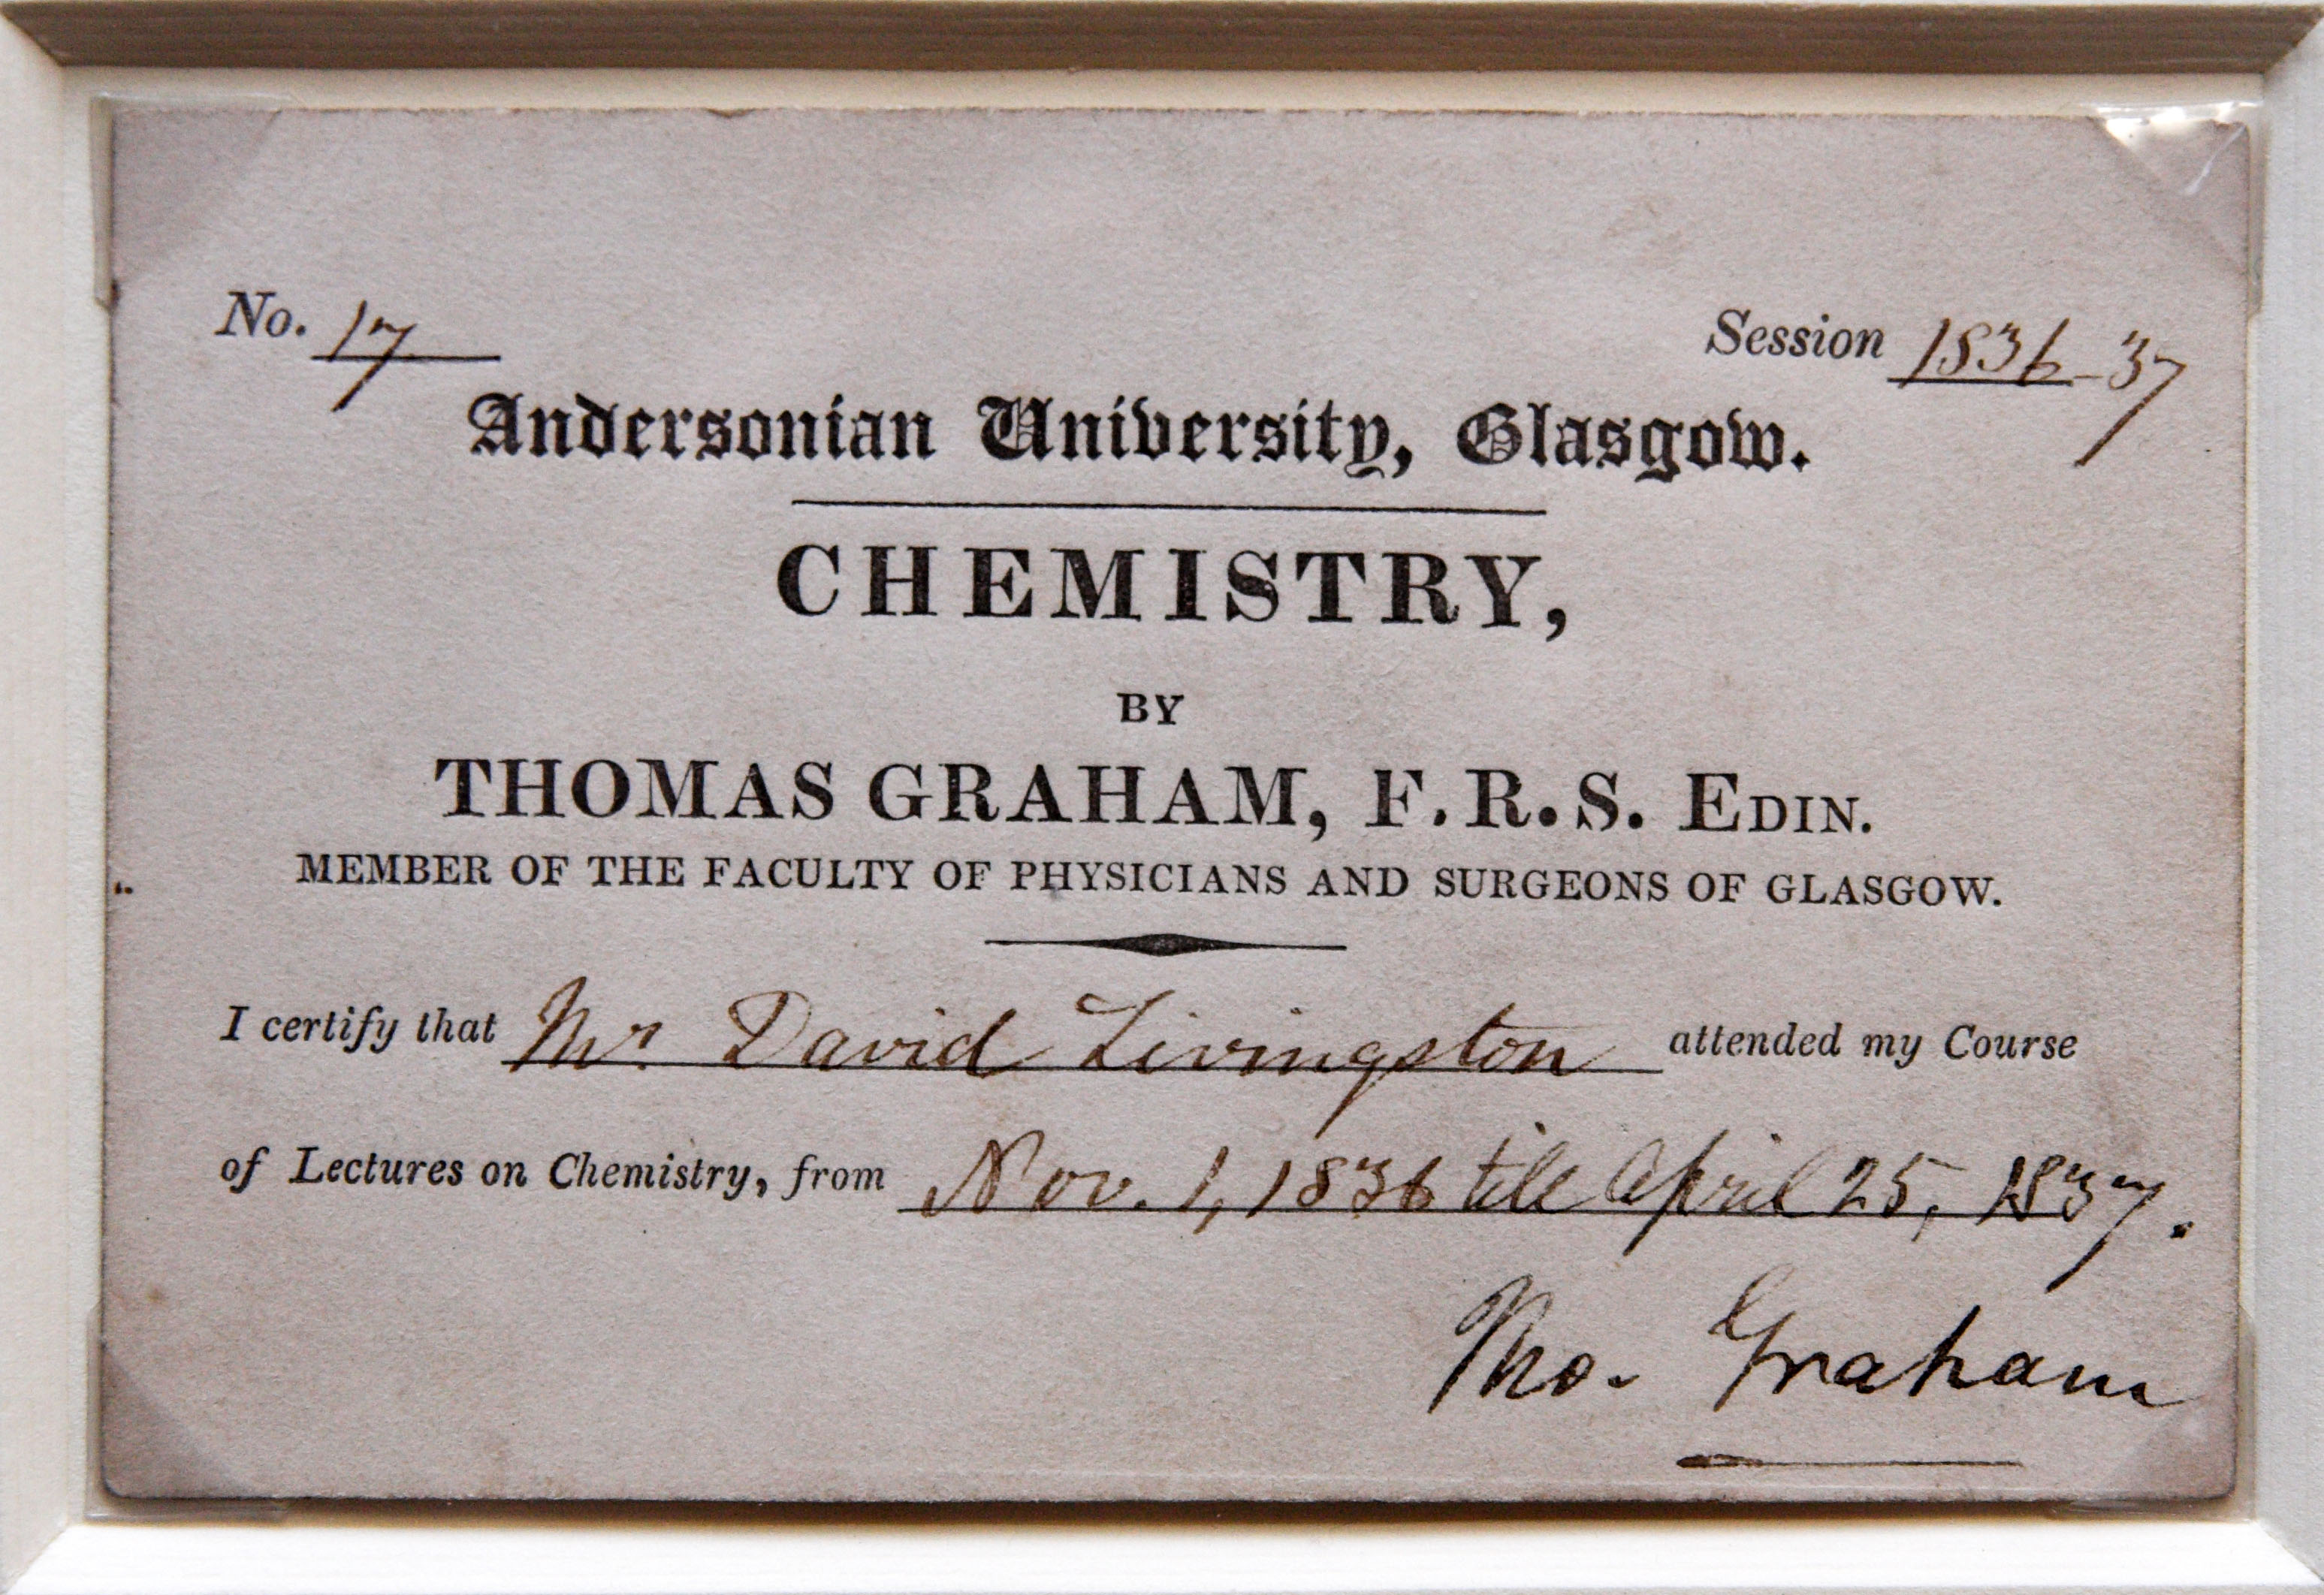 No. 17
Session 1836-37
Andersonian University, Glasgow.
CHEMISTRY,
BY
THOMAS GRAHAM, F.R.S. EDIN.
MEMBER OF THE FACULTY OF PHYSICIANS AND SURGEONS OF GLASGOW.
I certify that Mr David Livingston attended my Course
of Lectures on Chemistry, from Nov. 1, 1836 till April 25, 1837.
Tho. Graham